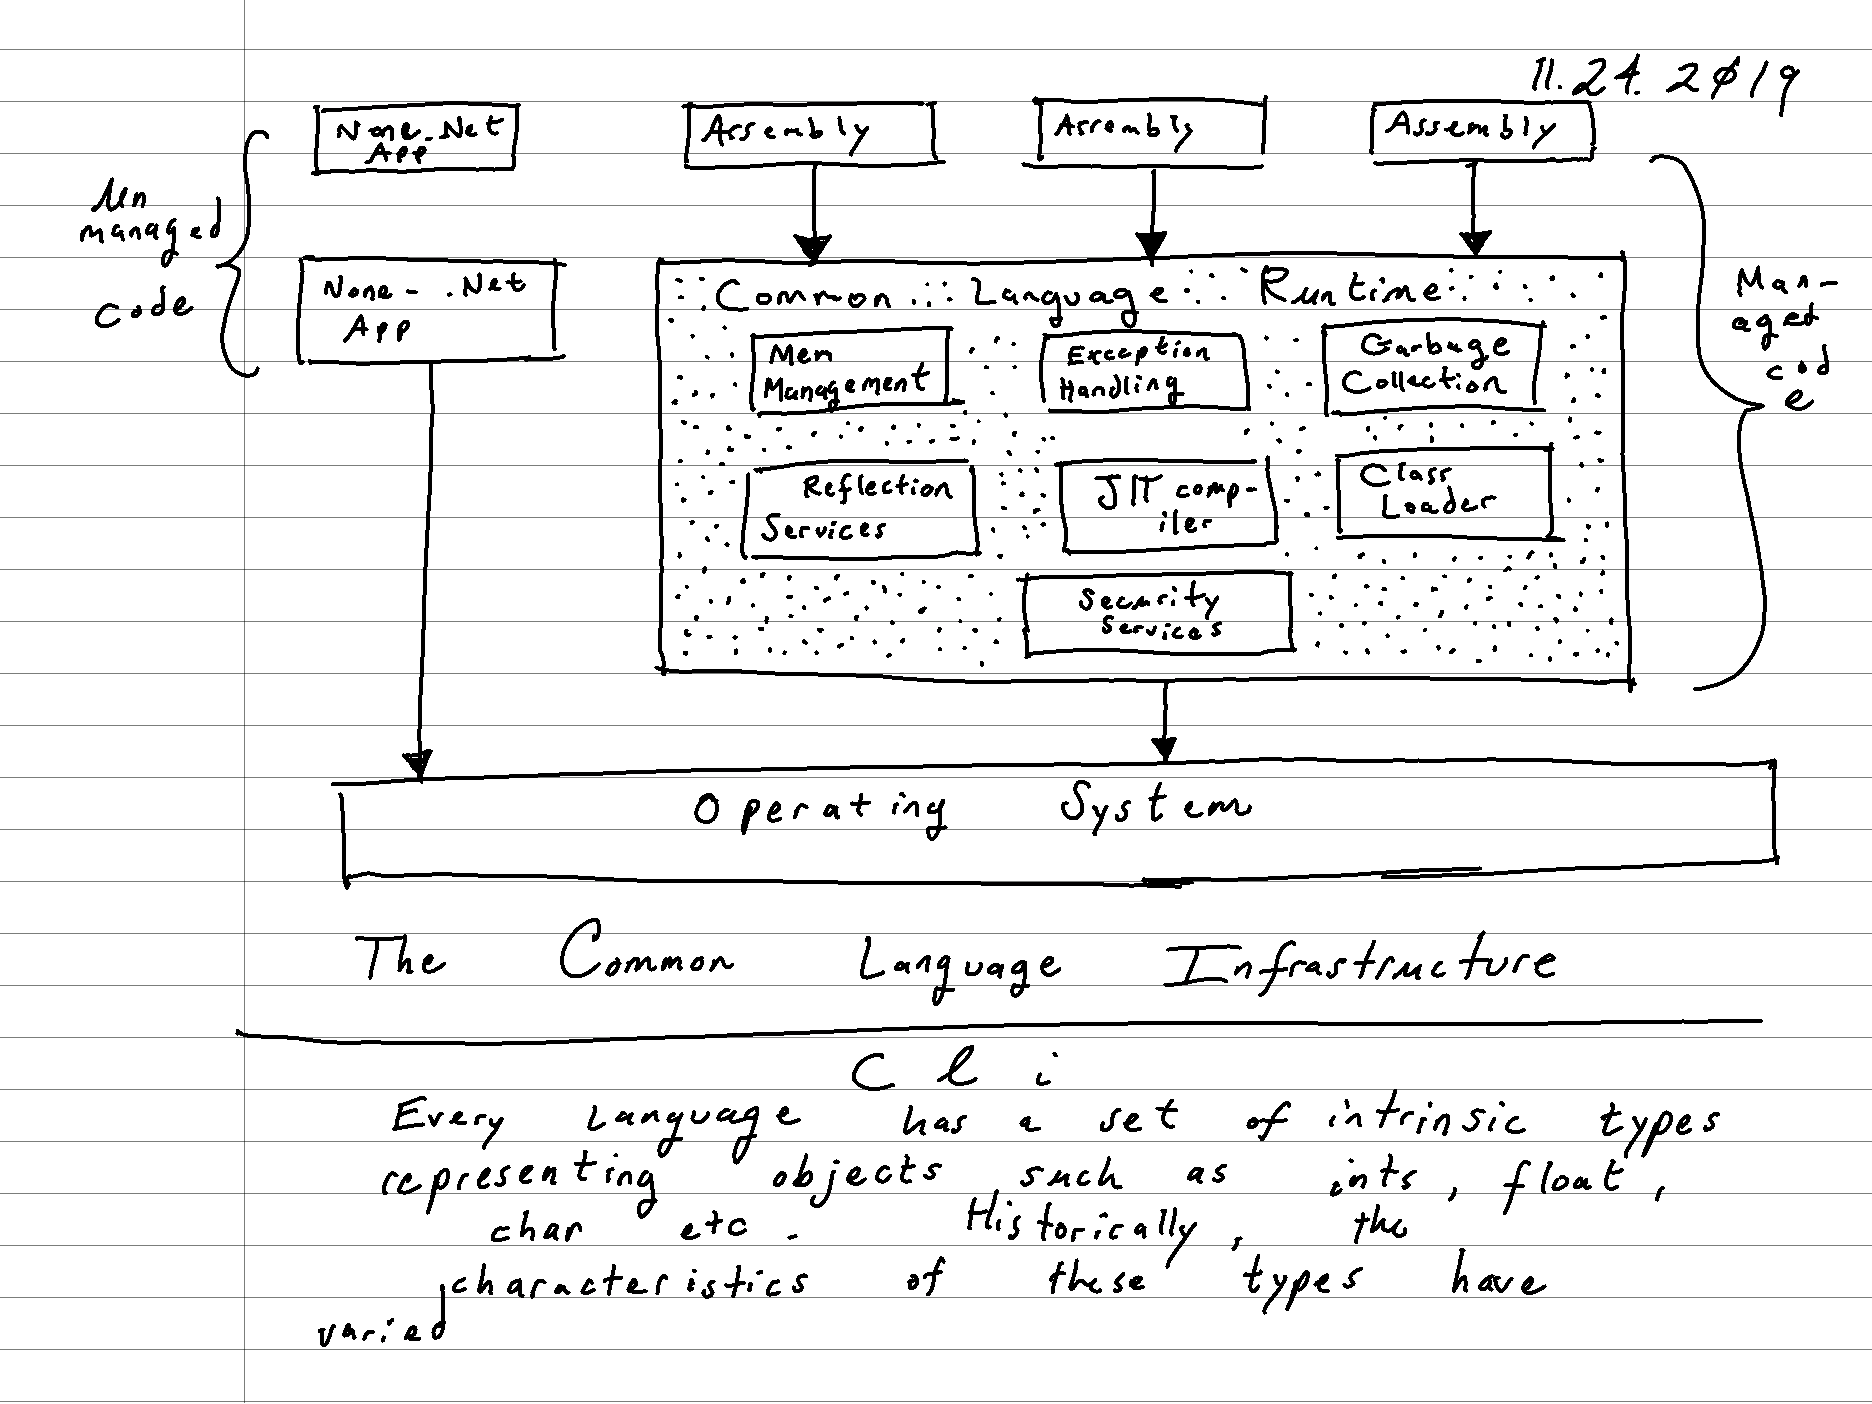 11.24.2019
None-.Net
App
Assembly
Assembly
Assembly
Un
managed
code
None- .Net
App
Common Language Runtime
Man-
aged
cod
e
Mem
Management
Exception
Handling
Garbage
Collection
Reflection
Services
JIT comp-
iler
Class
Loader
Security
Services
Operating System
The Common Language Infrastructure
Cli
Every Language has a set of intrinsic types
representing objects such as ints, float,
char etc. Historically, the
characteristics of these types have
varied